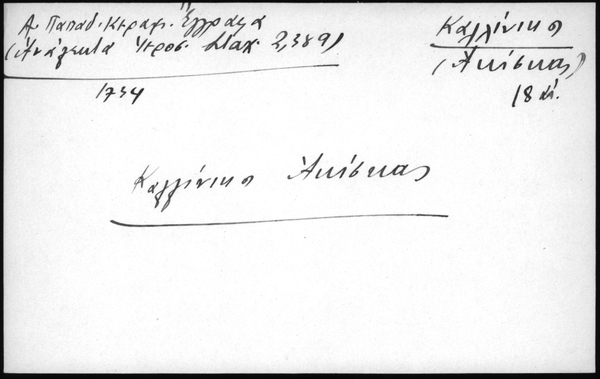 Α. Παπαδ. Κεραμ. Ἔγγραφα
(Ἀνάλεκτα Ἱεροσ. Σταχ. 2,389)
1734
Καλλίνικος
(Ἀκίσκας)
18 αἰ.
Καλλίνικος Ἀκίσκας